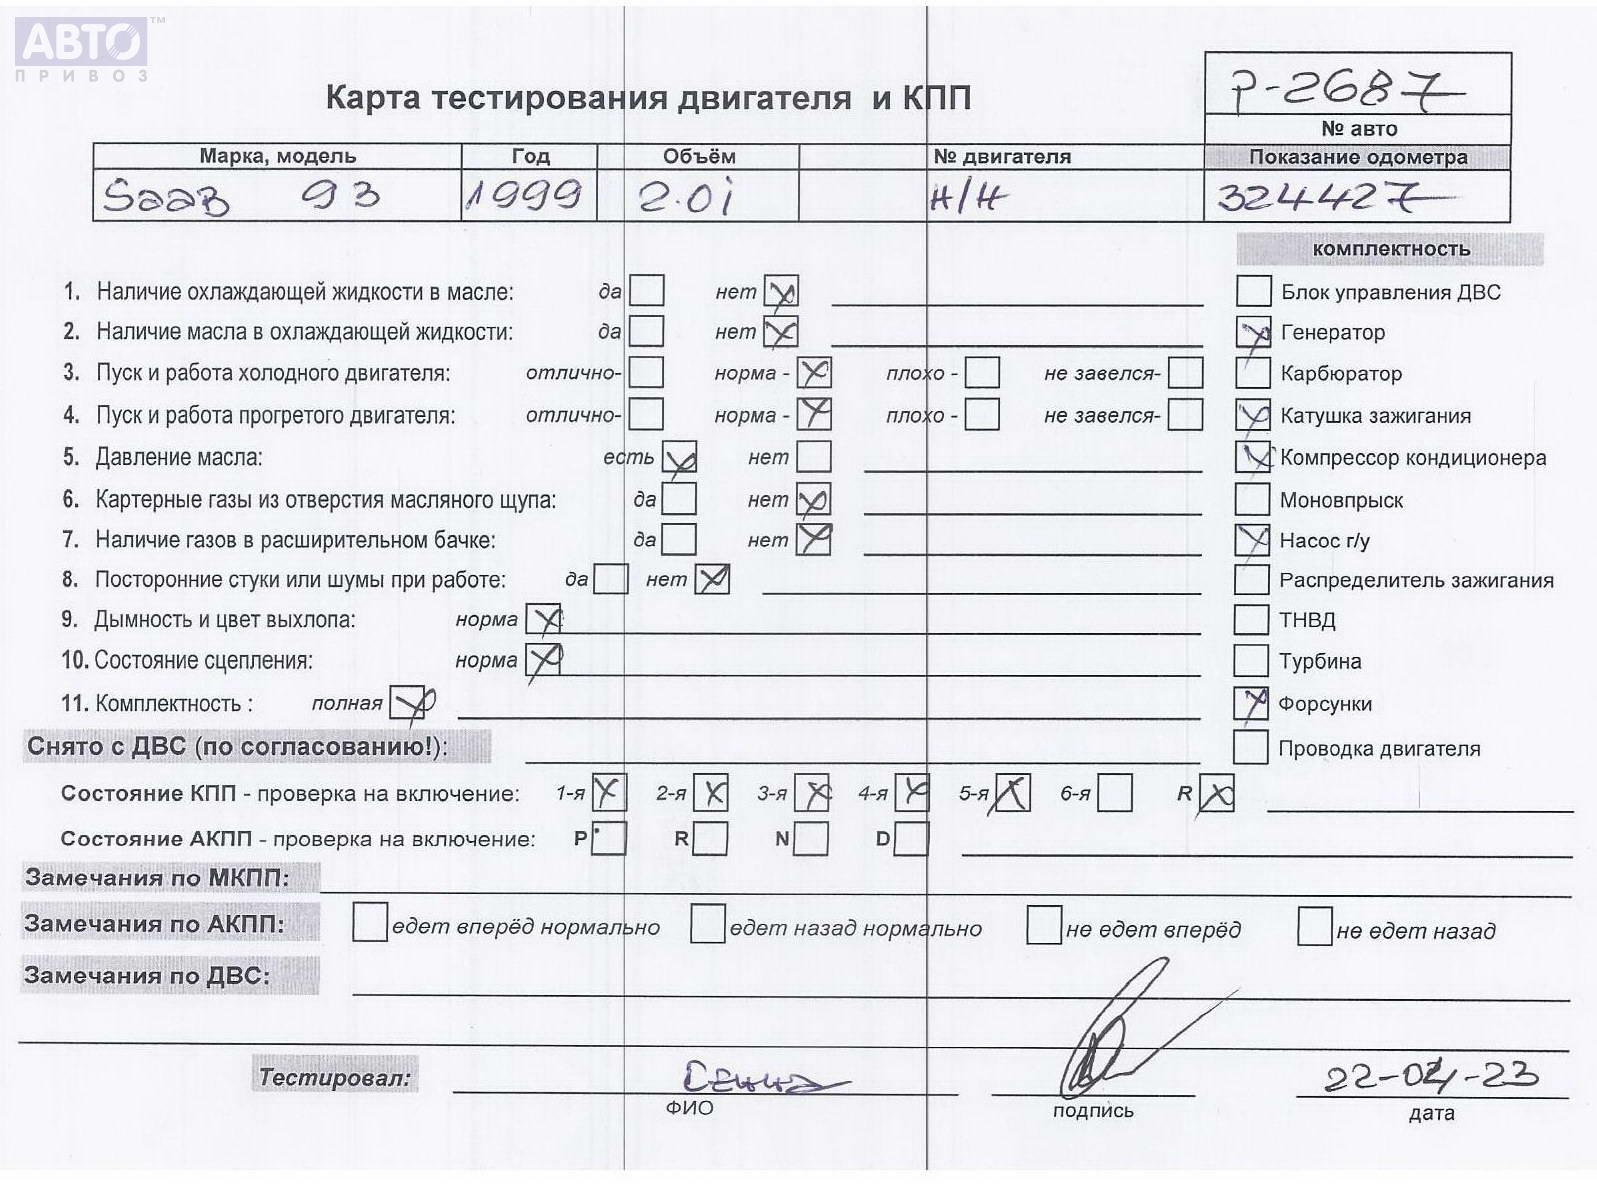 АВТО™
ПРИВОЗ
Карта тестирования двигателя и КПП
P-2687
№ авто
Марка, модель Год Объём № двигателя Показание одометра
Saab 93 1999 2.0i Н/Н 324427
комплектность
1. Наличие охлаждающей жидкости в масле: да нет Блок управления ДВС
2. Наличие масла в охлаждающей жидкости: да нет Генератор
3. Пуск и работа холодного двигателя: отлично- норма - плохо - не завелся- Карбюратор
4. Пуск и работа прогретого двигателя: отлично- норма - плохо - не завелся- Катушка зажигания
5. Давление масла: есть нет Компрессор кондиционера
6. Картерные газы из отверстия масляного щупа: да нет Моновпрыск
7. Наличие газов в расширительном бачке: да нет Насос г/у
8. Посторонние стуки или шумы при работе: да нет Распределитель зажигания
9. Дымность и цвет выхлопа: норма ТНВД
10. Состояние сцепления: норма Турбина
11. Комплектность : полная Форсунки
Снято с ДВС (по согласованию!): Проводка двигателя
Состояние КПП - проверка на включение: 1-я 2-я 3-я 4-я 5-я 6-я R
Состояние АКПП - проверка на включение: P R N D
Замечания по МКПП:
Замечания по АКПП: едет вперёд нормально едет назад нормально не едет вперёд не едет назад
Замечания по ДВС:
Тестировал: 22-04-23
ФИО подпись дата